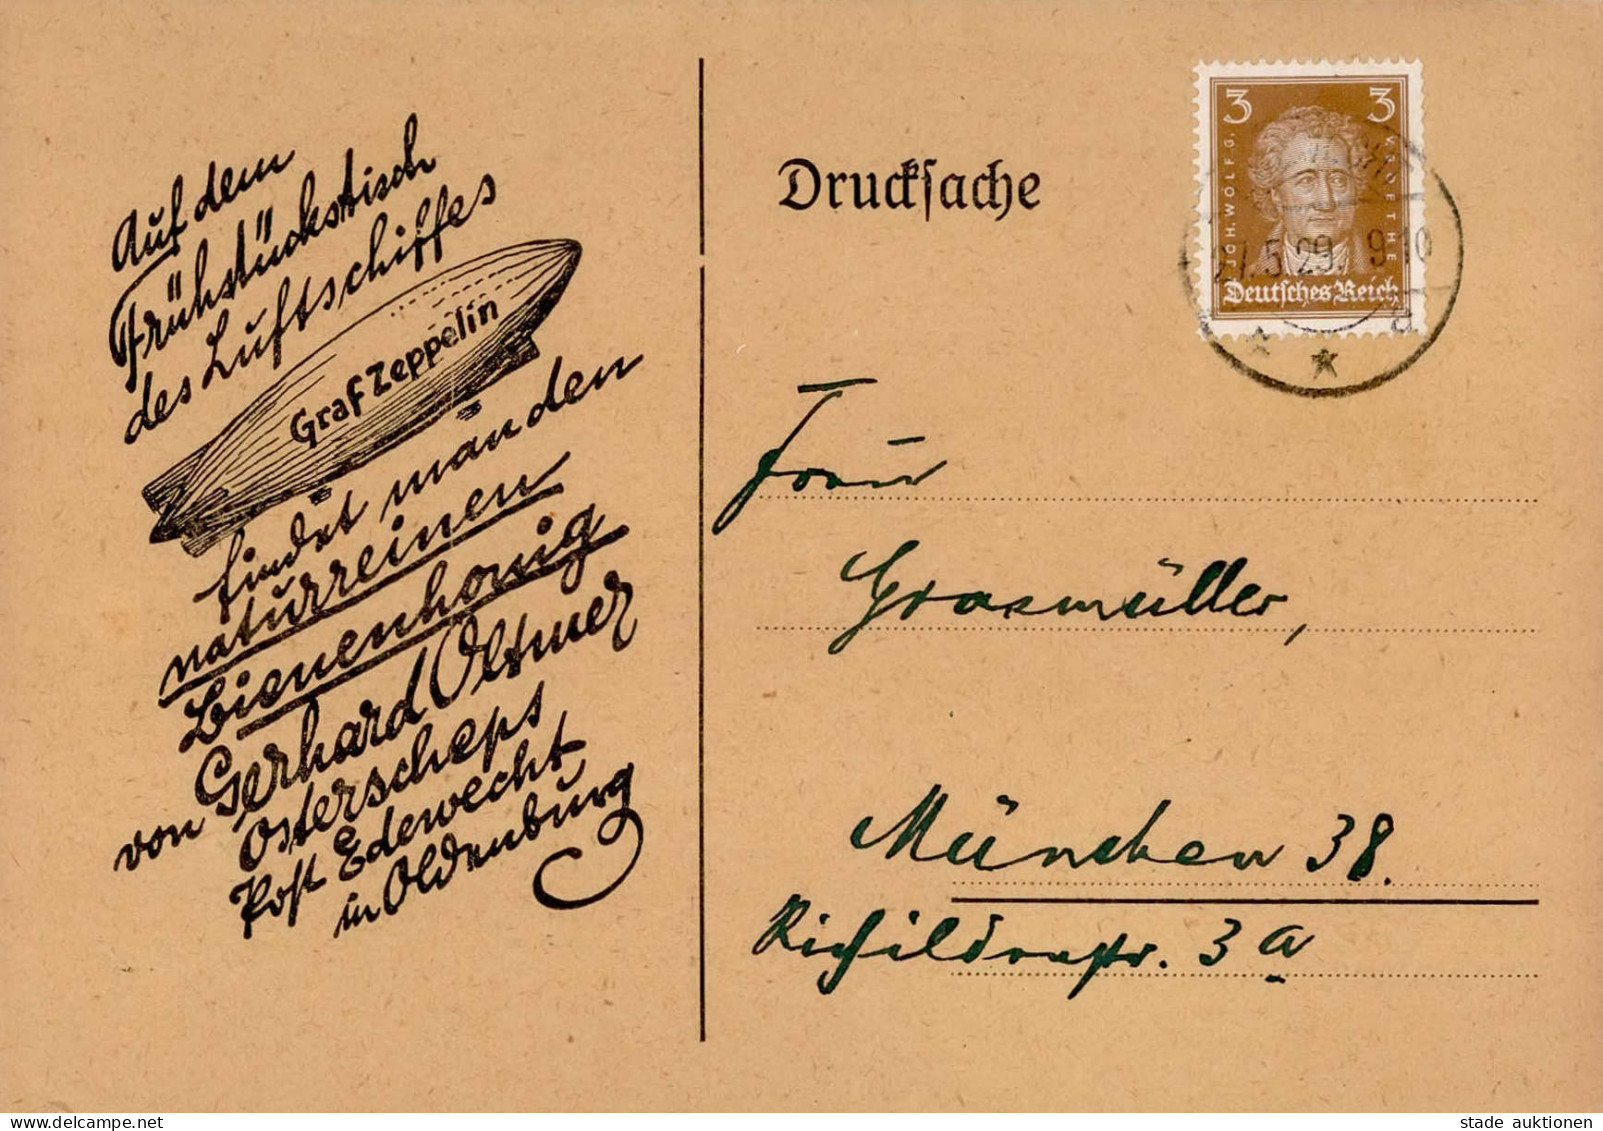 Auf dem
Frühstückstisch
des Luftschiffes
Graf Zeppelin
findet man den
naturreinen
Bienenhonig
von Gerhard Oltmer
Osterscheps
Post Edewecht
in Oldenburg
Drucksache
3 3
JOH. WOLFG. V. GOETHE
Deutsches Reich
27.5.29. 9-10
d
Frau
Grasmüller,
München 38.
Richildenstr. 3a
stade auktionen